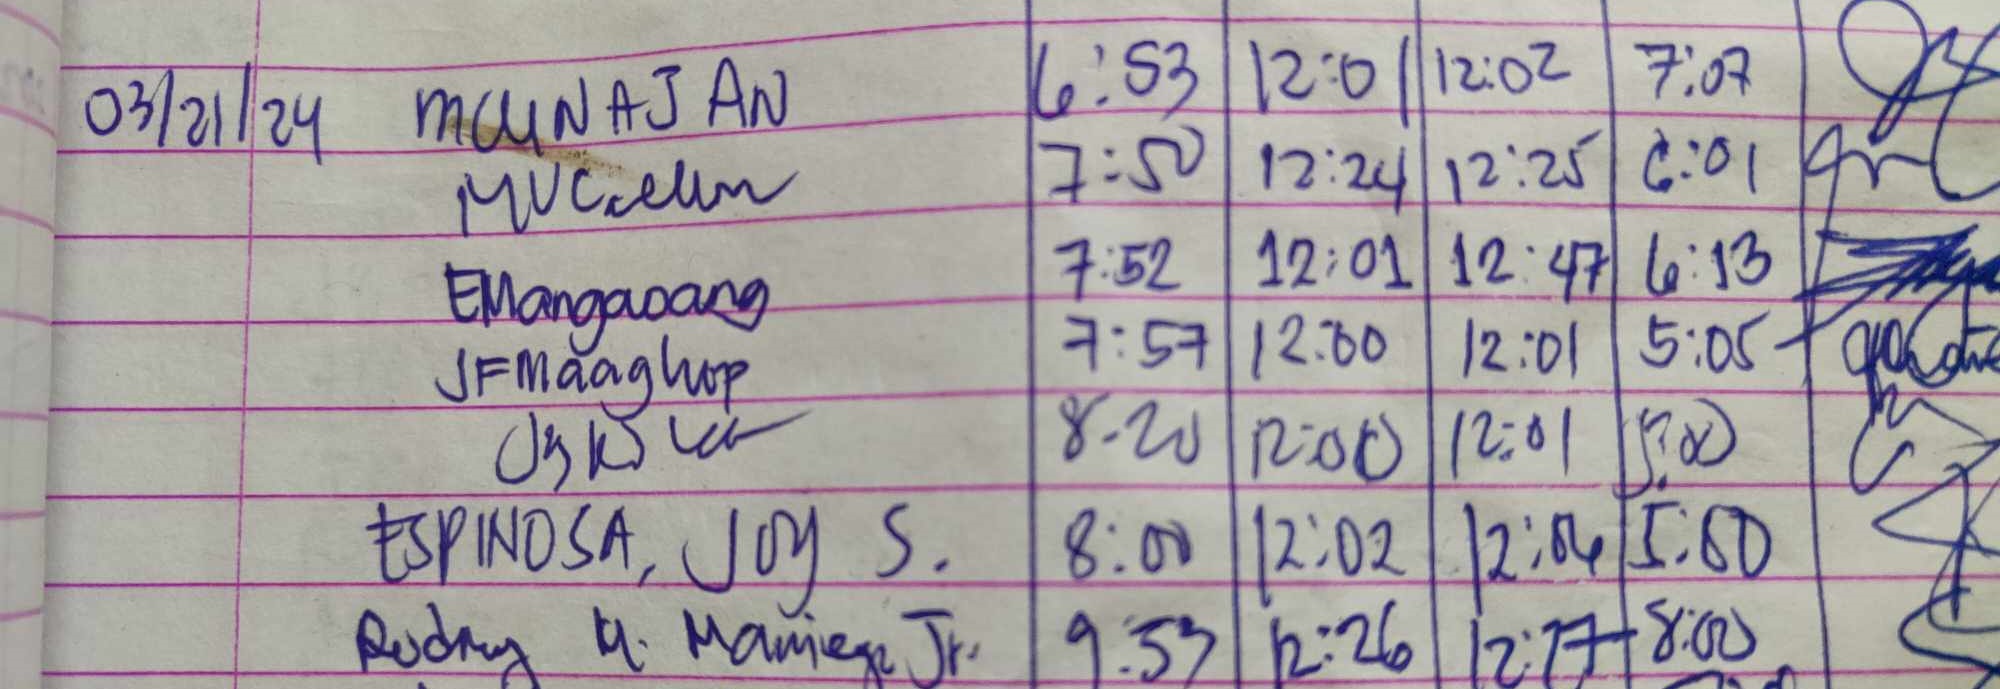 03/21/24 MCUNAJAN 6:53 12:01 12:02 7:07
7:50 12:24 12:25 6:01
EMangaoang 7:52 12:01 12:47 6:13
JFMaaghop 7:57 12:00 12:01 5:05
8-20 12:00 12:01 5:00
ESPINOSA, JOY S. 8:00 12:02 12:04 5:00
Rodny M. Jr. 9:53 12:26 12:27 8:00